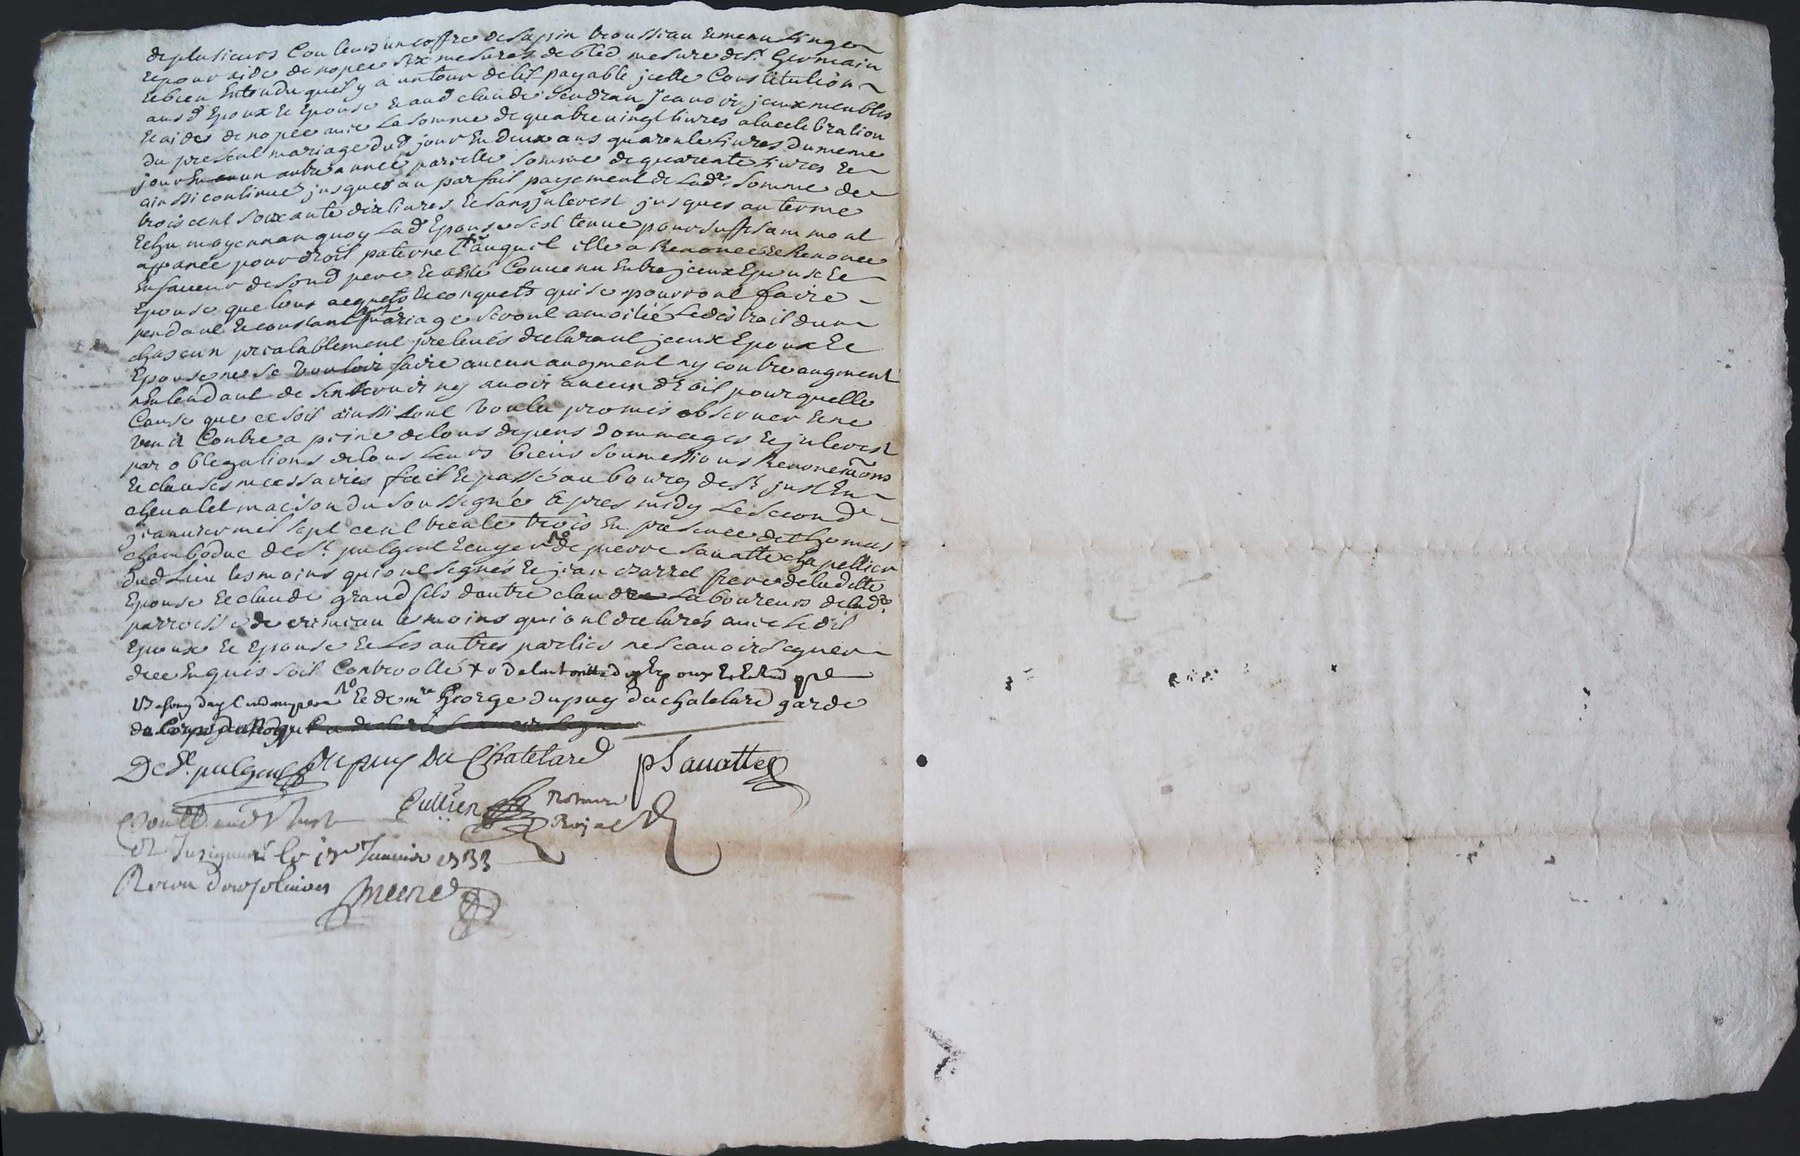 de plusieurs Couleurs un coffre de sapin troussiau et menu Linge
et pour aide de nopce six mesures de bled mesure de st Germain
et bien Entendu quil y a un tour de lit payable jcelle Constitution
aus d Epoux et Epouse et aud claude scavoir jceux meubles
et aides de nopce avec La somme de quatre vingt livres a la celebration
du present mariage dud jour En deux ans quarente Livres du meme
jour En un autre année pareille somme de quarente Livres et
ainssi continuer jusques au parfait payement de Lade somme de
trois cent soixante dix livres et sans jnterest jusques au terme
Echu moyennan quoy Lad Epouse sest tenue pour suffisamment
appanée pour droit paternel auquel elle a Renoncé et Renonce
En faveur de sond pere et a esté Convenu Entre jceux Epoux et
Epouse que tous acquets et conquets qui se pourront faire
pendant et constant mariage seront a moitié Le distrait d'un
chascun prealablement prelevés declarant jceux Epoux et
Epouse ne se vouloir faire aucun augment ny contre augment
nEntendant de sen servir ny avoir aucun d Eoit pour quelle
Cause que ce soit ainssi tout voulu promis observer et ne
venir Contre a peine de tous depens dommages et jnterest
par obligations de tous leurs biens soumessions Renonciaons
et clauses necessaires fait et passé au bourg de st just En
chevalet maison du soussigné apres midy Le second
janvier mil sept cent trente trois En presence de thomas
chamboduc de st pulgent et de pierre sauatte chapellier
dud Lieu tesmoins qui ont signés et jean Barret frere de ladette
Epouse et claude grand fils d'autre claude Laboureurs de lade
parroisse de cremeau tesmoins qui ont declarés avec Le dit
Epoux et Epouse et Les autres parties ne scavoir signer
de ce Enquis soit Controollé
et de mre George dupuy du chatelard garde
du Corps du Roy
De st pulgent Dupuy Du Chatelard pSauatte
Cullien Notaire
Royal
Controllé aud st Just
et Insignué le janvier 1733
Receu douze livres